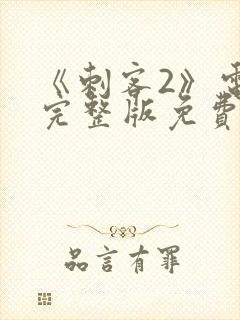 《刺客2》電
完整版免費
品言有罪